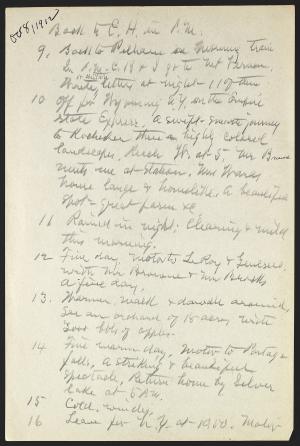 Oct 8, 1912
Book to C. H. in P.M.
9. Back to Pelham on Morning train
In P.M. C.B & I go to Mt Vernon,
Write letters at night - 119
10 Off for Wyoming N.Y. on the Empire
State Express. A swift smooth journey
to Rochester thru a highly colored
landscape. Reach W. at 5. Mr
meets me at station. Mrs Wards
house large & homelike. A beautiful
spot - great farm &c
11 Rained in night; Clearing & mild
this morning.
12 Fine day, Motor to LeRoy & Geneseo,
with Mr Browne & Mr
A fine day.
13. Warmer, walk & dawdle around,
See an orchard of 15 acres, with
bbls of apples.
14 Fine warm day, Motor to Portage
falls, a striking & beautiful
spectacle, Return home by Silver
Lake at 5 P.M.
15 Cold, windy.
16 Leave for N.Y. at 10.50.